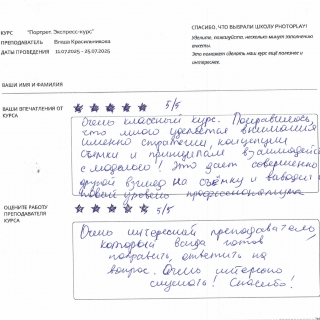 КУРС "Портрет. Экспресс-курс"
ПРЕПОДАВАТЕЛЬ Влада Красильникова
ДАТЫ ПРОВЕДЕНИЯ 11.07.2025 - 25.07.2025
СПАСИБО, ЧТО ВЫБРАЛИ ШКОЛУ PHOTOPLAY!
Уделите, пожалуйста, несколько минут заполнению
анкеты.
Это поможет сделать наш курс ещё полезнее и
интереснее.
ВАШИ ИМЯ И ФАМИЛИЯ
ВАШИ ВПЕЧАТЛЕНИЯ ОТ
КУРСА
5/5
Очень классный курс. Понравилось,
что много уделяется внимания
именно стратегии, концепции
съёмки и принципам взаимодейс
с моделью! Это даёт совершенно
другой взгляд на съёмку и выводит н
новый уровень профессионализма
ОЦЕНИТЕ РАБОТУ
ПРЕПОДАВАТЕЛЯ
КУРСА
5/5
Очень интересный преподаватель,
который всегда готов
поправить, ответить на
вопрос. Очень интересно
слушать! Спасибо!